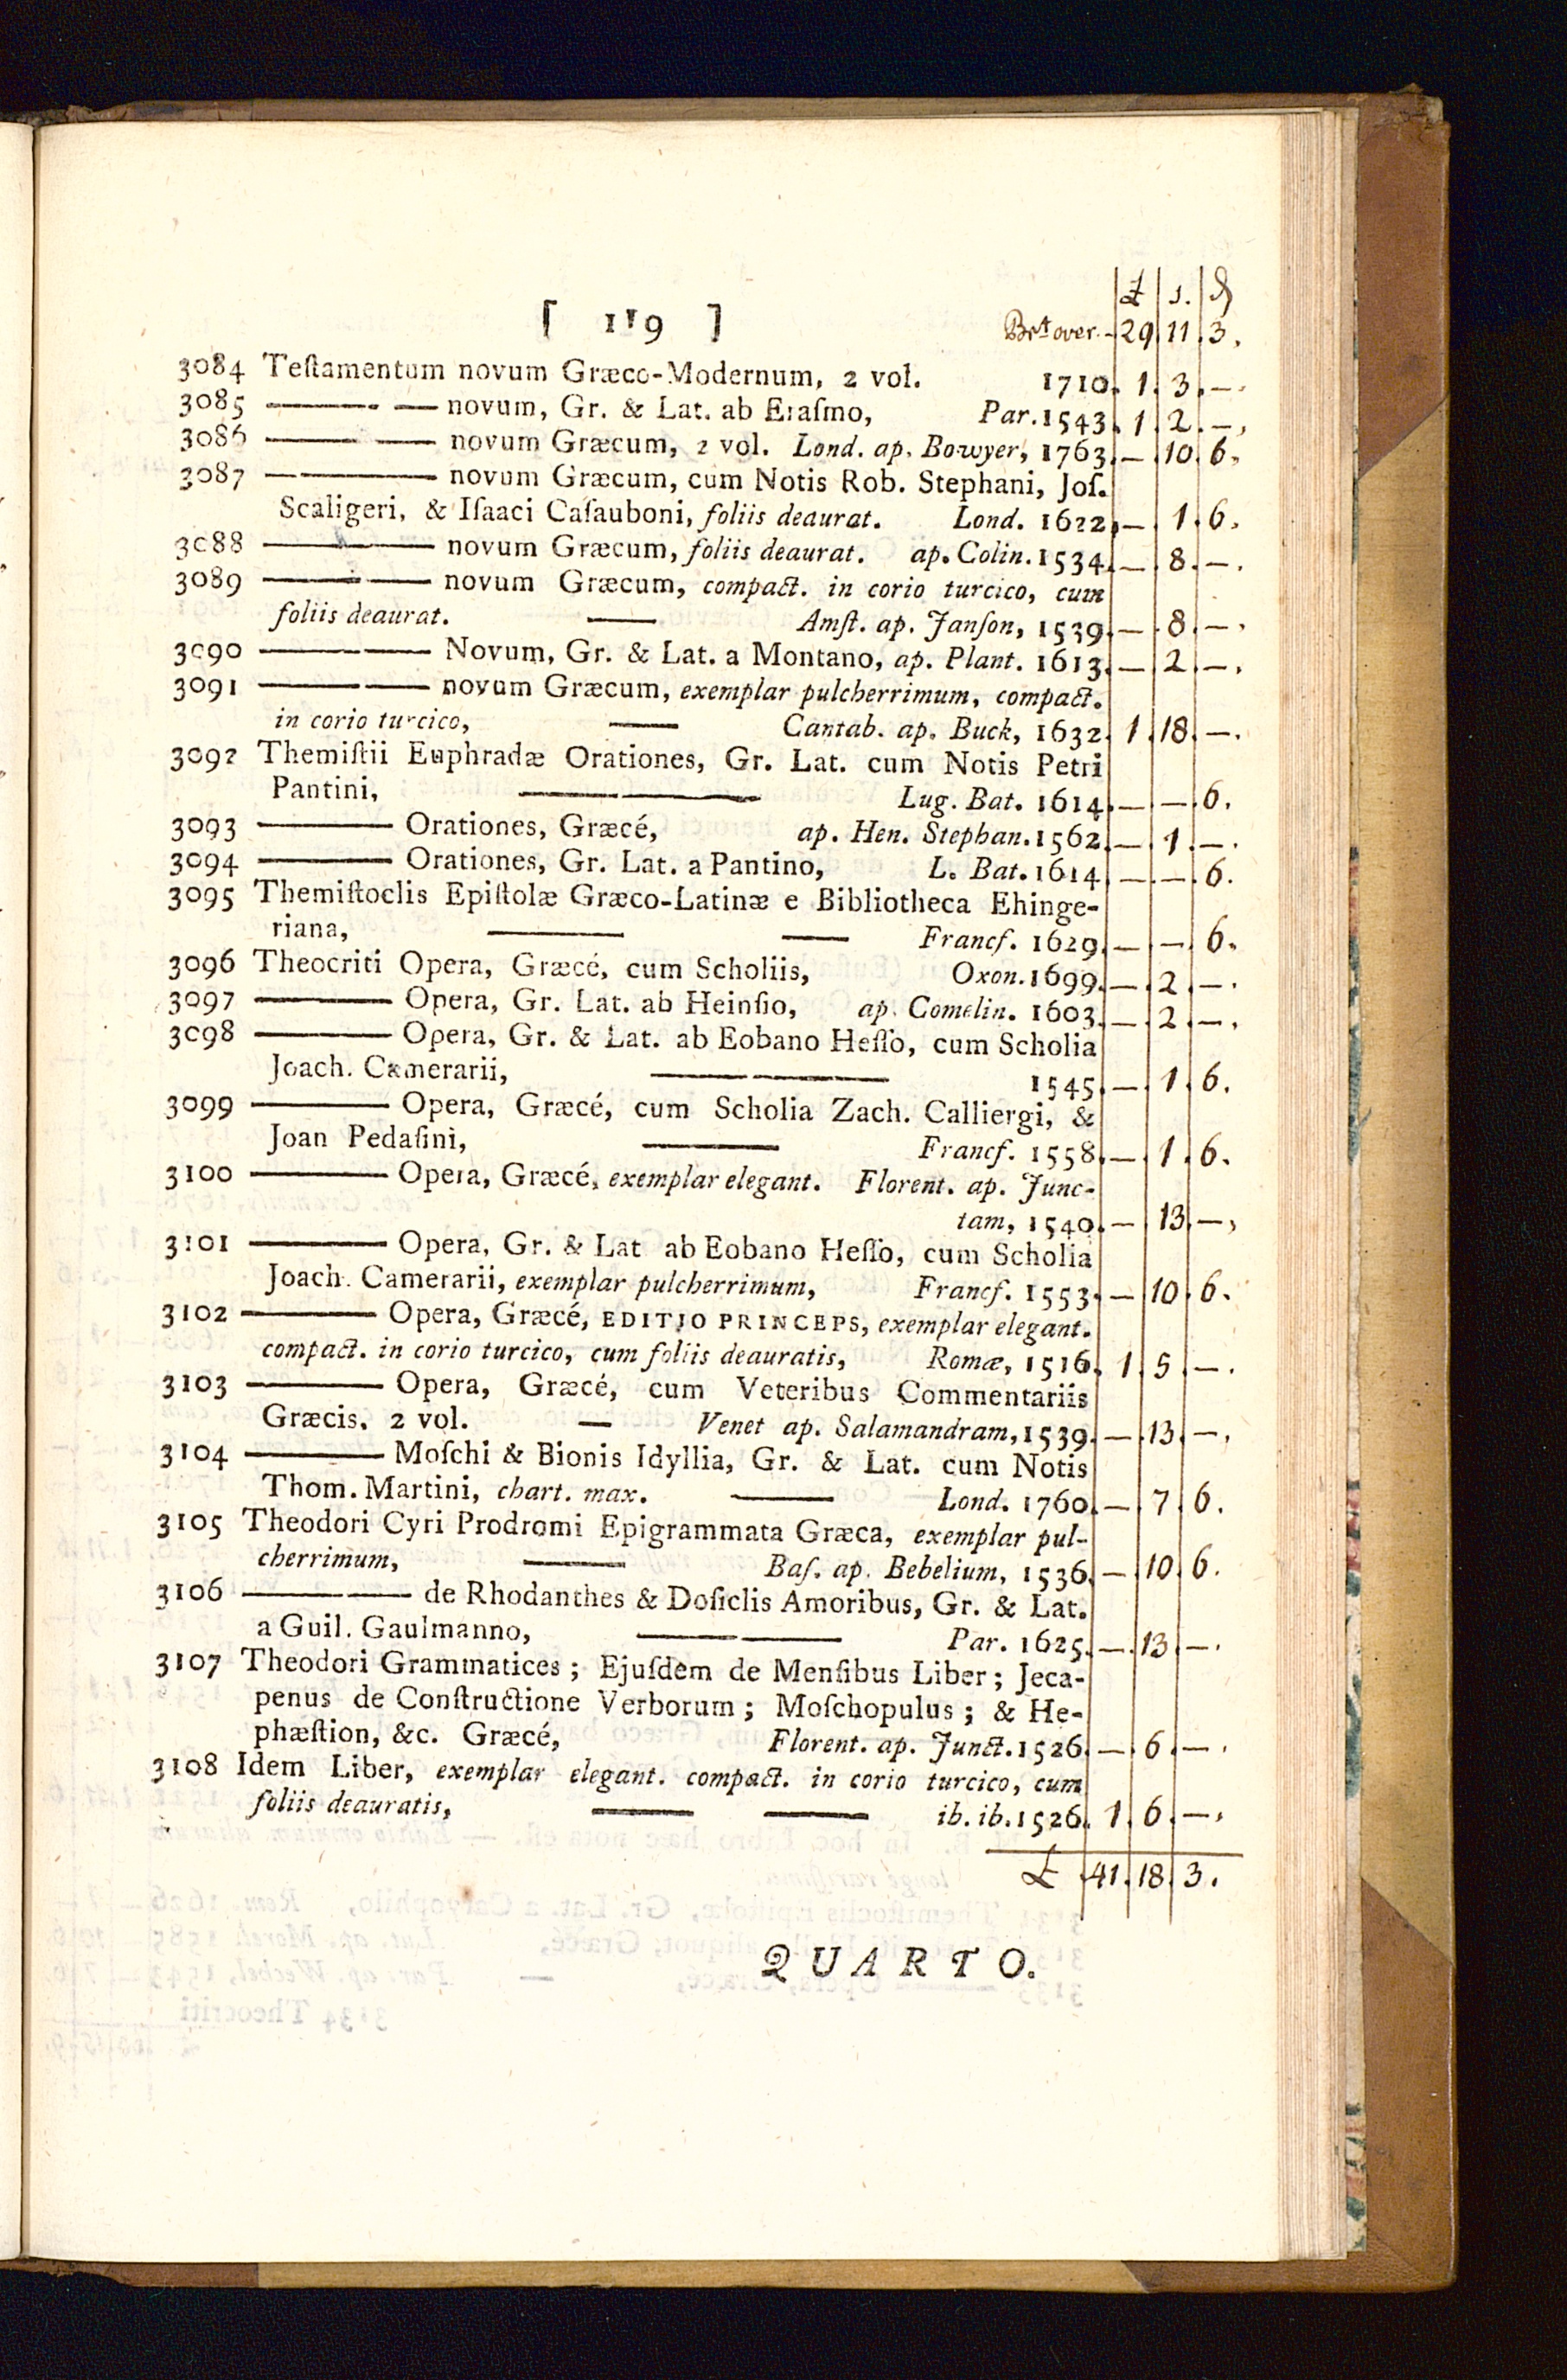 £ s. d
[ 119 ] Brt over. - 29 11 3.
3084 Teſtamentum novum Græco-Modernum, 2 vol. 1710. 1. 3. —.
3085 ——— — novum, Gr. & Lat. ab Eraſmo, Par. 1543. 1. 2. —.
3086 ——— — novum Græcum, 2 vol. Lond. ap. Bowyer, 1763. — 10. 6.
3087 ———— novum Græcum, cum Notis Rob. Stephani, Joſ.
Scaligeri, & Iſaaci Caſauboni, foliis deaurat. Lond. 1622, — 1. 6.
3088 ———— novum Græcum, foliis deaurat. ap. Colin. 1534. — 8. —.
3089 ———— novum Græcum, compact. in corio turcico, cum
foliis deaurat. —— Amſt. ap. Janſon, 1539. — 8. —.
3090 ———— Novum, Gr. & Lat. a Montano, ap. Plant. 1613. — 2. —.
3091 ———— novum Græcum, exemplar pulcherrimum, compact.
in corio turcico, —— Cantab. ap. Buck, 1632. 1. 18. —.
3092 Themiſtii Euphradæ Orationes, Gr. Lat. cum Notis Petri
Pantini, ———— Lug. Bat. 1614. — — 6.
3093 ——— Orationes, Græcé, ap. Hen. Stephan. 1562. — 1. —.
3094 ——— Orationes, Gr. Lat. a Pantino, L. Bat. 1614. — — 6.
3095 Themiſtoclis Epiſtolæ Græco-Latinæ e Bibliotheca Ehinge-
riana, ——— —— Francf. 1629. — — 6.
3096 Theocriti Opera, Græcé, cum Scholiis, Oxon. 1699. — 2. —.
3097 ——— Opera, Gr. Lat. ab Heinſio, ap. Comelin. 1603. — 2. —.
3098 ——— Opera, Gr. & Lat. ab Eobano Heſſo, cum Scholia
Joach. Camerarii, ———— 1545. — 1. 6.
3099 ——— Opera, Græcé, cum Scholia Zach. Calliergi, &
Joan Pedaſini, ——— Francf. 1558. — 1. 6.
3100 ——— Opera, Græcé, exemplar elegant. Florent. ap. Junc-
tam, 1540. — 13. —,
3101 ——— Opera, Gr. & Lat ab Eobano Heſſo, cum Scholia
Joach. Camerarii, exemplar pulcherrimum, Francf. 1553. — 10. 6.
3102 ——— Opera, Græcé, EDITIO PRINCEPS, exemplar elegant.
compact. in corio turcico, cum foliis deauratis, Romæ, 1516. 1. 5. —.
3103 ——— Opera, Græcé, cum Veteribus Commentariis
Græcis, 2 vol. — Venet ap. Salamandram, 1539. — 13. —.
3104 ——— Moſchi & Bionis Idyllia, Gr. & Lat. cum Notis
Thom. Martini, chart. max. —— Lond. 1760. — 7. 6.
3105 Theodori Cyri Prodromi Epigrammata Græca, exemplar pul-
cherrimum, —— Baſ. ap. Bebelium, 1536. — 10. 6.
3106 ———— de Rhodanthes & Doſiclis Amoribus, Gr. & Lat.
a Guil. Gaulmanno, ———— Par. 1625. — 13. —.
3107 Theodori Grammatices; Ejuſdem de Menſibus Liber; Jeca-
penus de Conſtructione Verborum; Moſchopulus; & He-
phæſtion, &c. Græcé, Florent. ap. Junct. 1526. — 6. —.
3108 Idem Liber, exemplar elegant. compact. in corio turcico, cum
foliis deauratis, —— —— ib. ib. 1526. 1. 6. —.
£ 41. 18. 3.
QUARTO.